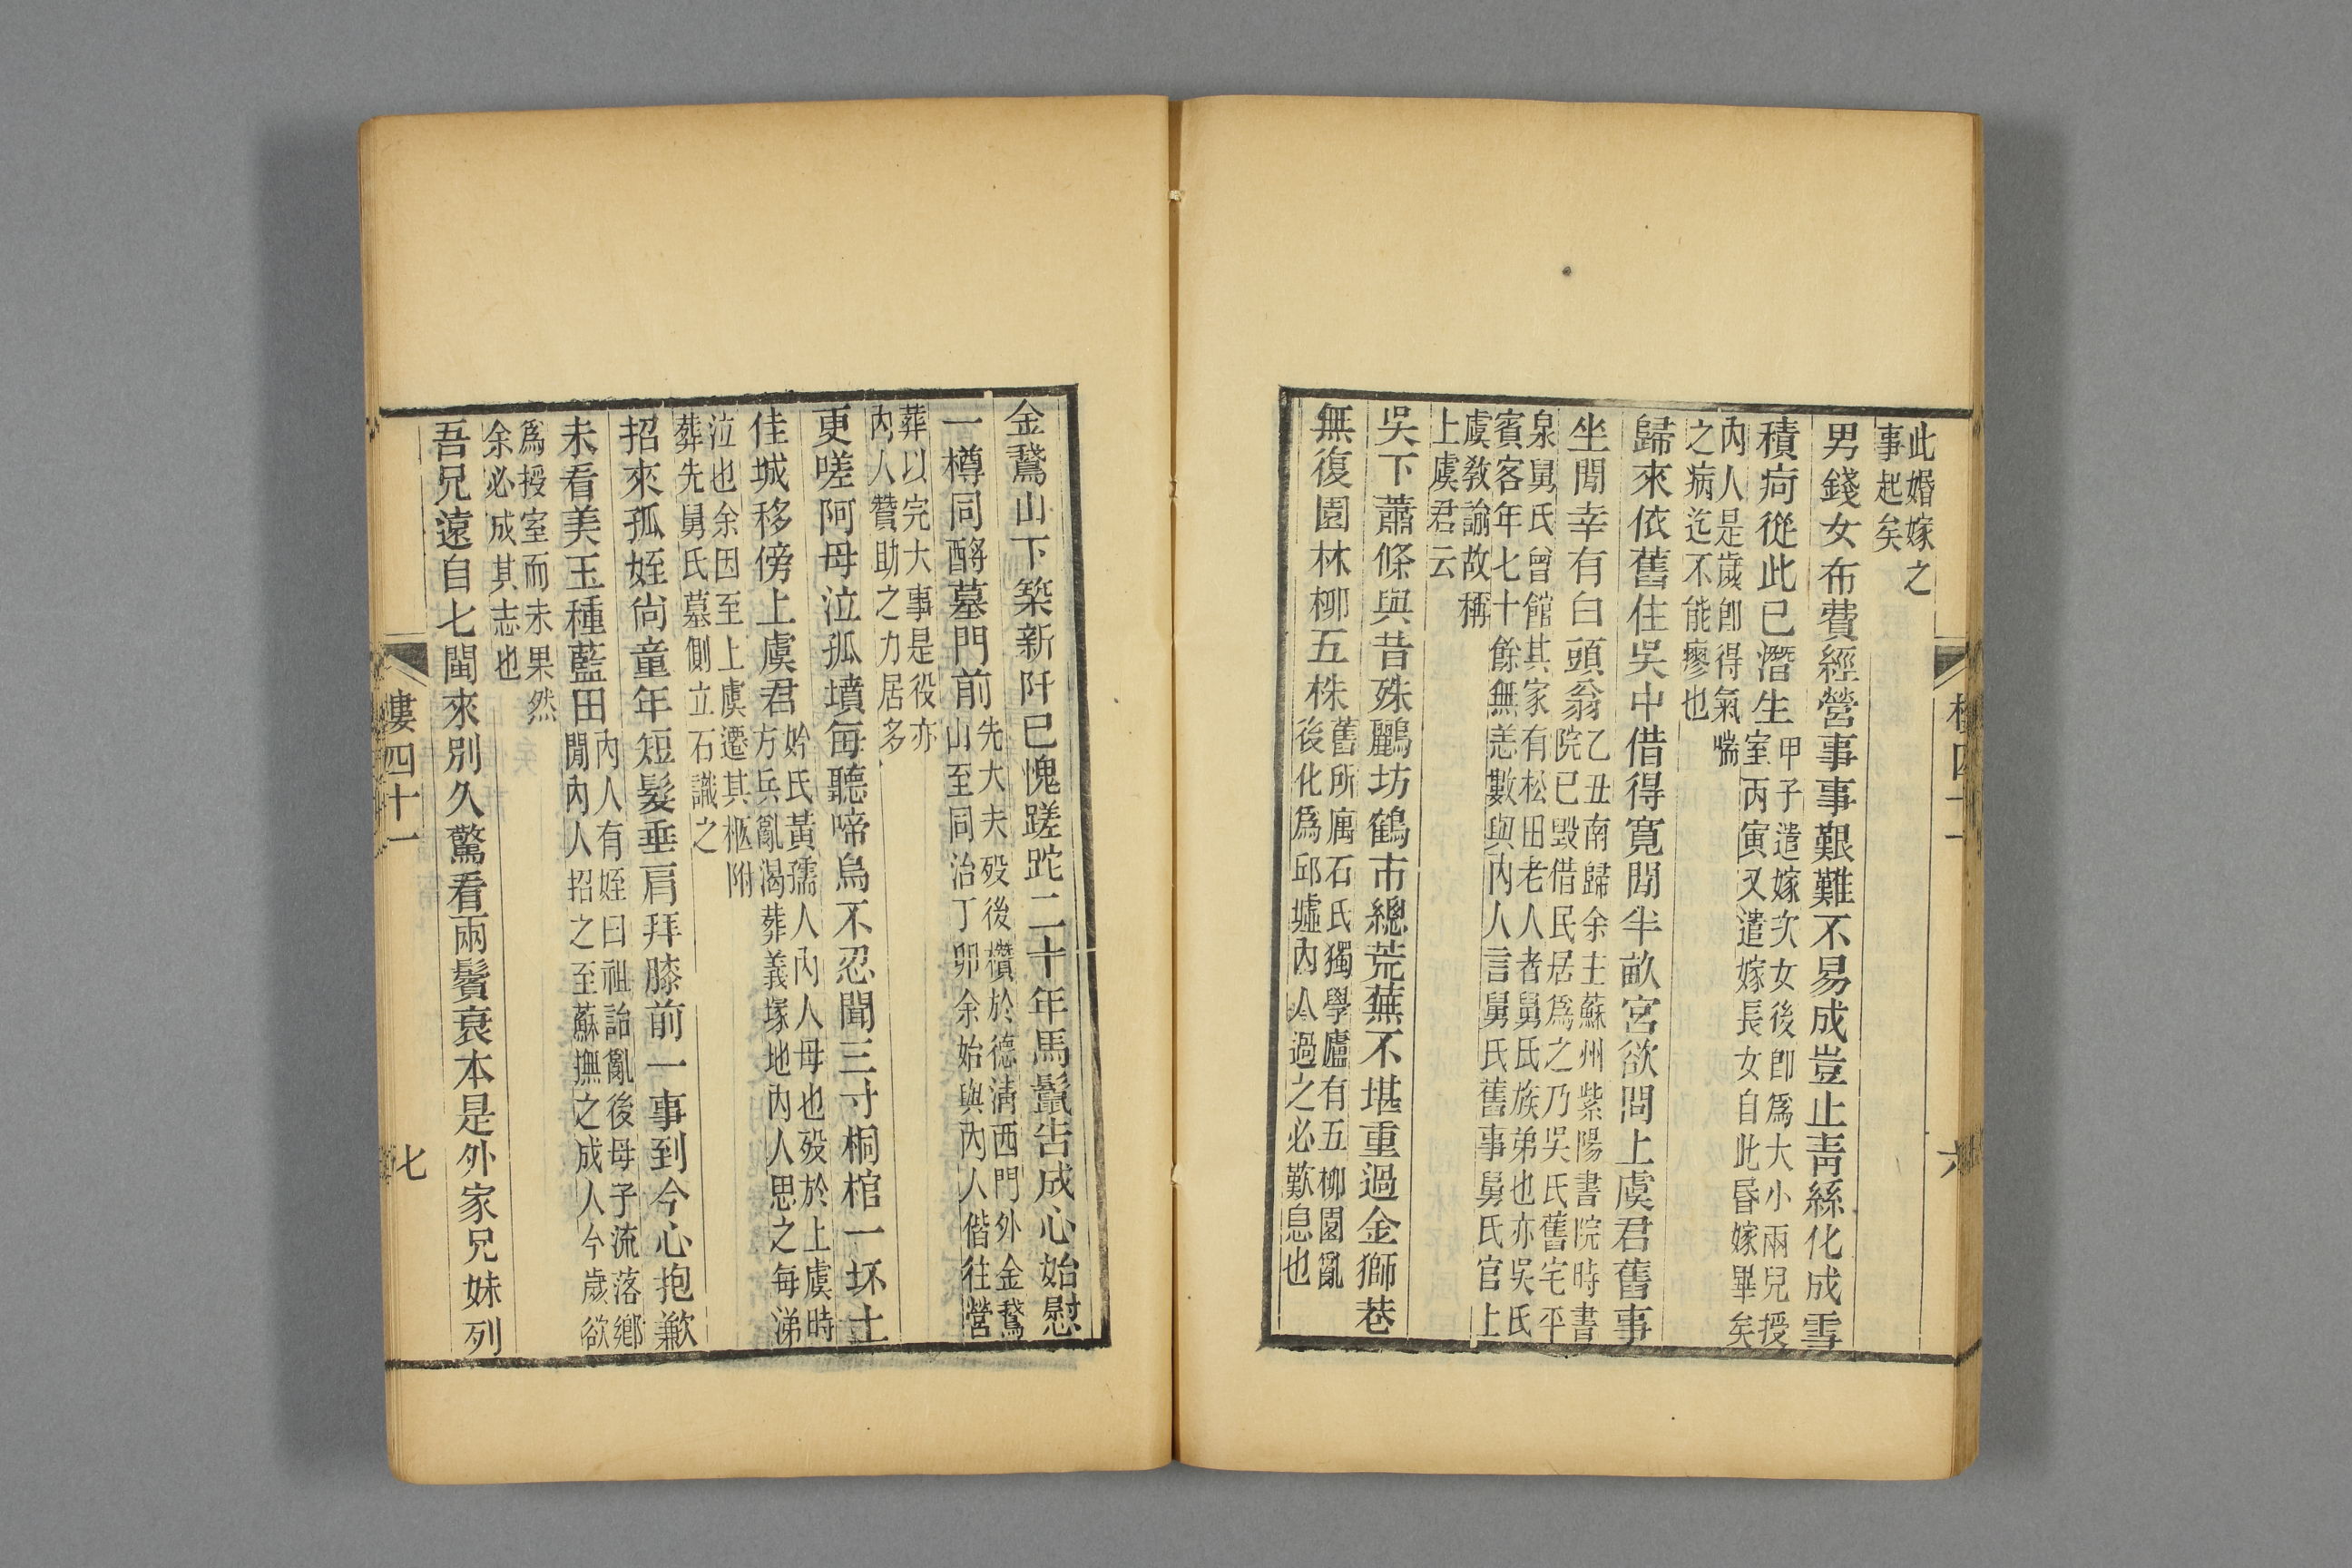 此婚嫁之
事起矣
男錢女布費經營事事艱難不易成豈止靑絲化成雪
積疴從此已潛生
甲子遣嫁次女後卽爲大小兩兒授
室丙寅又遣嫁長女自此昏嫁畢矣
內人是歲卽得氣喘
之病迄不能瘳也
歸來依舊住吳中借得寬閒半畝宮欲問上虞君舊事
坐閒幸有白頭翁
乙丑南歸余主蘇州紫陽書院時書
院已毀借民居爲之乃吳氏舊宅平
泉舅氏曾館其家有松田老人者舅氏族弟也亦吳氏
賓客年七十餘無恙數與內人言舅氏舊事舅氏官上
虞敎諭故稱
上虞君云
吳下蕭條與昔殊鸝坊鶴市總荒蕪不堪重過金獅巷
無復園林柳五株
舊所庽石氏獨學廬有五柳園亂
後化爲邱墟內人過之必歎息也
六
金鵞山下築新阡已愧蹉跎二十年馬鬛告成心始慰
一樽同酹墓門前
先大夫歿後欑於德淸西門外金鵞
山至同治丁卯余始與內人偕往營
葬以完大事是役亦
內人贊助之力居多
更嗟阿母泣孤墳每聽啼烏不忍聞三寸桐棺一坏土
佳城移傍上虞君
妗氏黃孺人內人母也歿於上虞時
方兵亂渴葬義塚地內人思之每涕
泣也余因至上虞遷其柩附
葬先舅氏墓側立石識之
招來孤姪尙童年短髮垂肩拜膝前一事到今心抱歉
未看美玉種藍田
內人有姪曰祖詒亂後母子流落鄕
閒內人招之至蘇撫之成人今歲欲
爲授室而未果然
余必成其志也
吾兄遠自七閩來別久驚看兩鬢衰本是外家兄妹列
樓四十一
七